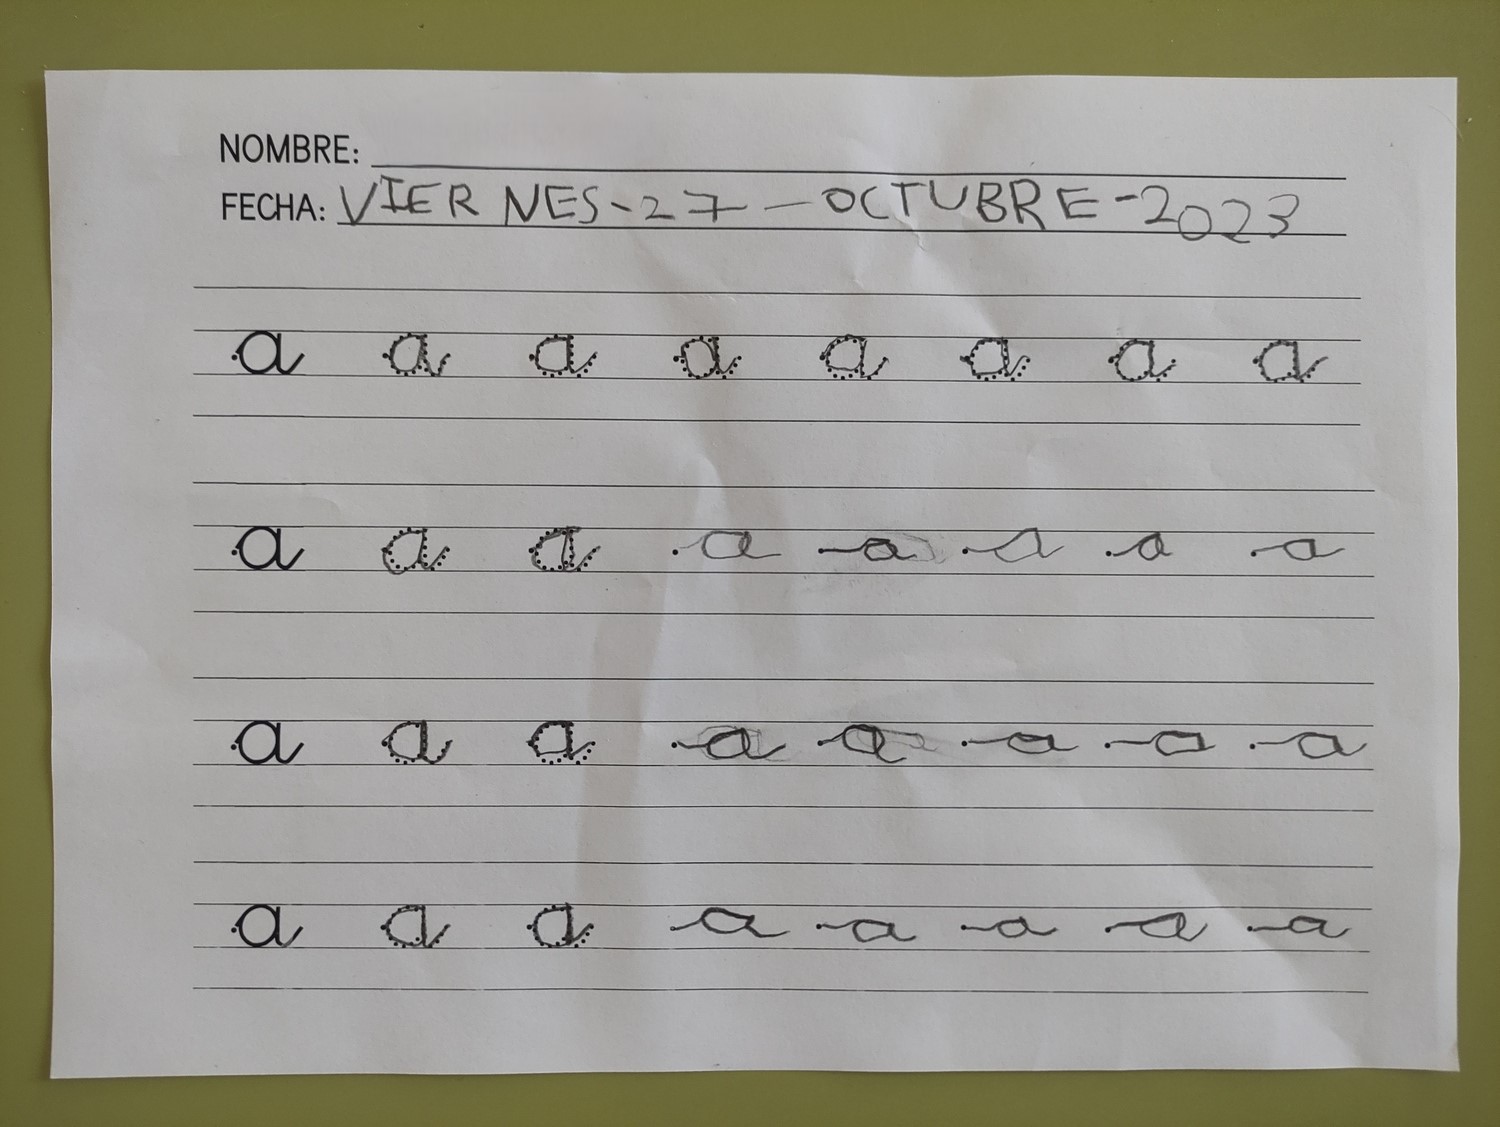 NOMBRE:
FECHA: VIERNES-27-OCTUBRE-2023
a a a a a a a a
a a a a a a a a
a a a a a a a a
a a a a a a a a